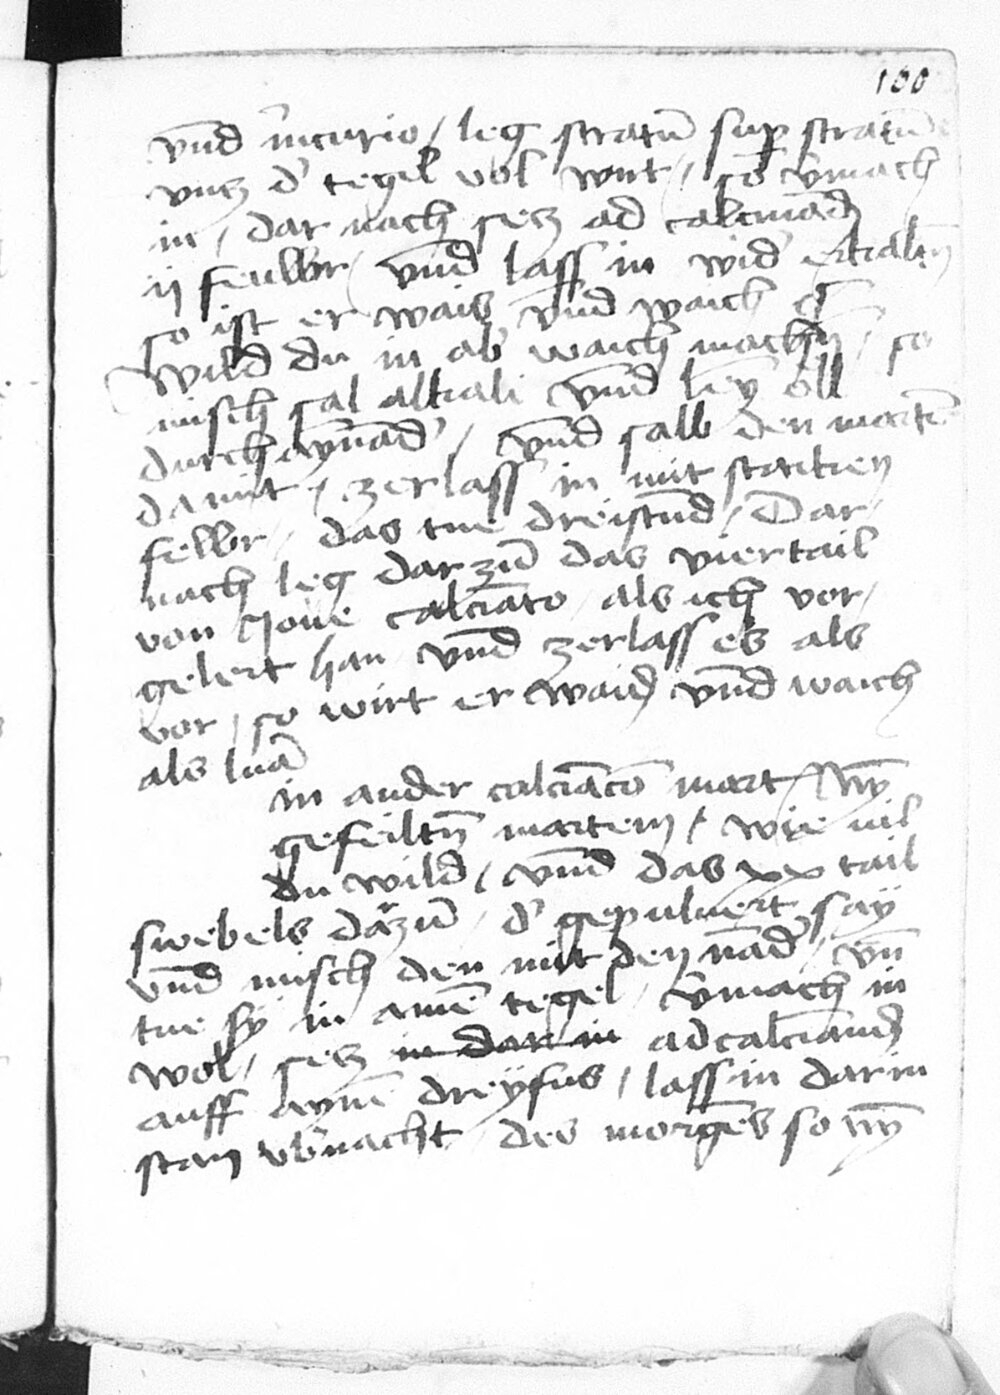 100
vnd mcurio / leg stratū sup stratū
vntz d' tegel vol wirt / so v̄mach
in / dar nach setz ad calcinād
ij feuwr / vnd lass in wid' erkaltn̄
so ist er wais vnd waich
Wild du in ab' waich machen / so
misch sal alkali vnd öll
durch aynād' / vnd salb den martē
damit / zerlass in mit starken
fewr / das tue dreistūd / Dar /
nach leg dar zū das viertail
von Joue calcīato / als ich vor /
gelert han vnd zerlass es als
vor / so wirt er waich vnd waich
als lūa
in ander calcīacō mart / Nȳ
gefeiltn̄ martem / wie vil
du wild / vnd das xx tail
swebels dazū / d' gepuluert say
vnd misch den mit den nād' / vn̄
tue sy in ainē tegel / v̄mach in
wol / setz in dar in ad calcīand
auff aynē dreyfus / lass in darin
stan vb'nacht / des morgēs so nȳ